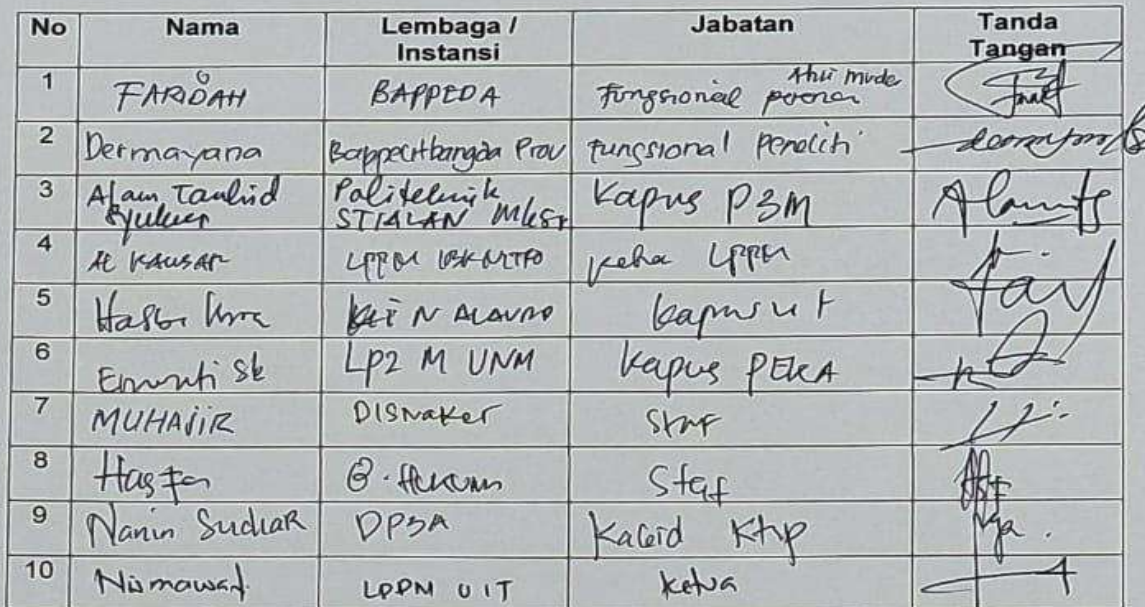 No Nama Lembaga / Instansi Jabatan Tanda Tangan
1 FARIDAH BAPPEDA Fungsional Ahli Muda
2 Dermayana Bappelitbangda Prov Fungsional Peneliti
3 Alam Tauhid Syukur Politeknik STIALAN Mksr Kapus P3M
4 AL KAUSAR LPPM Ketua LPPM
5 UIN ALAUDD Kapus
6 LP2M UNM Kapus PEKA
7 MUHAJIR DISNAKER Staf
8 B. Hukum Staf
9 Nanin Sudiar DP3A Kabid KHP
10 Nismawati LPPM UIT Ketua